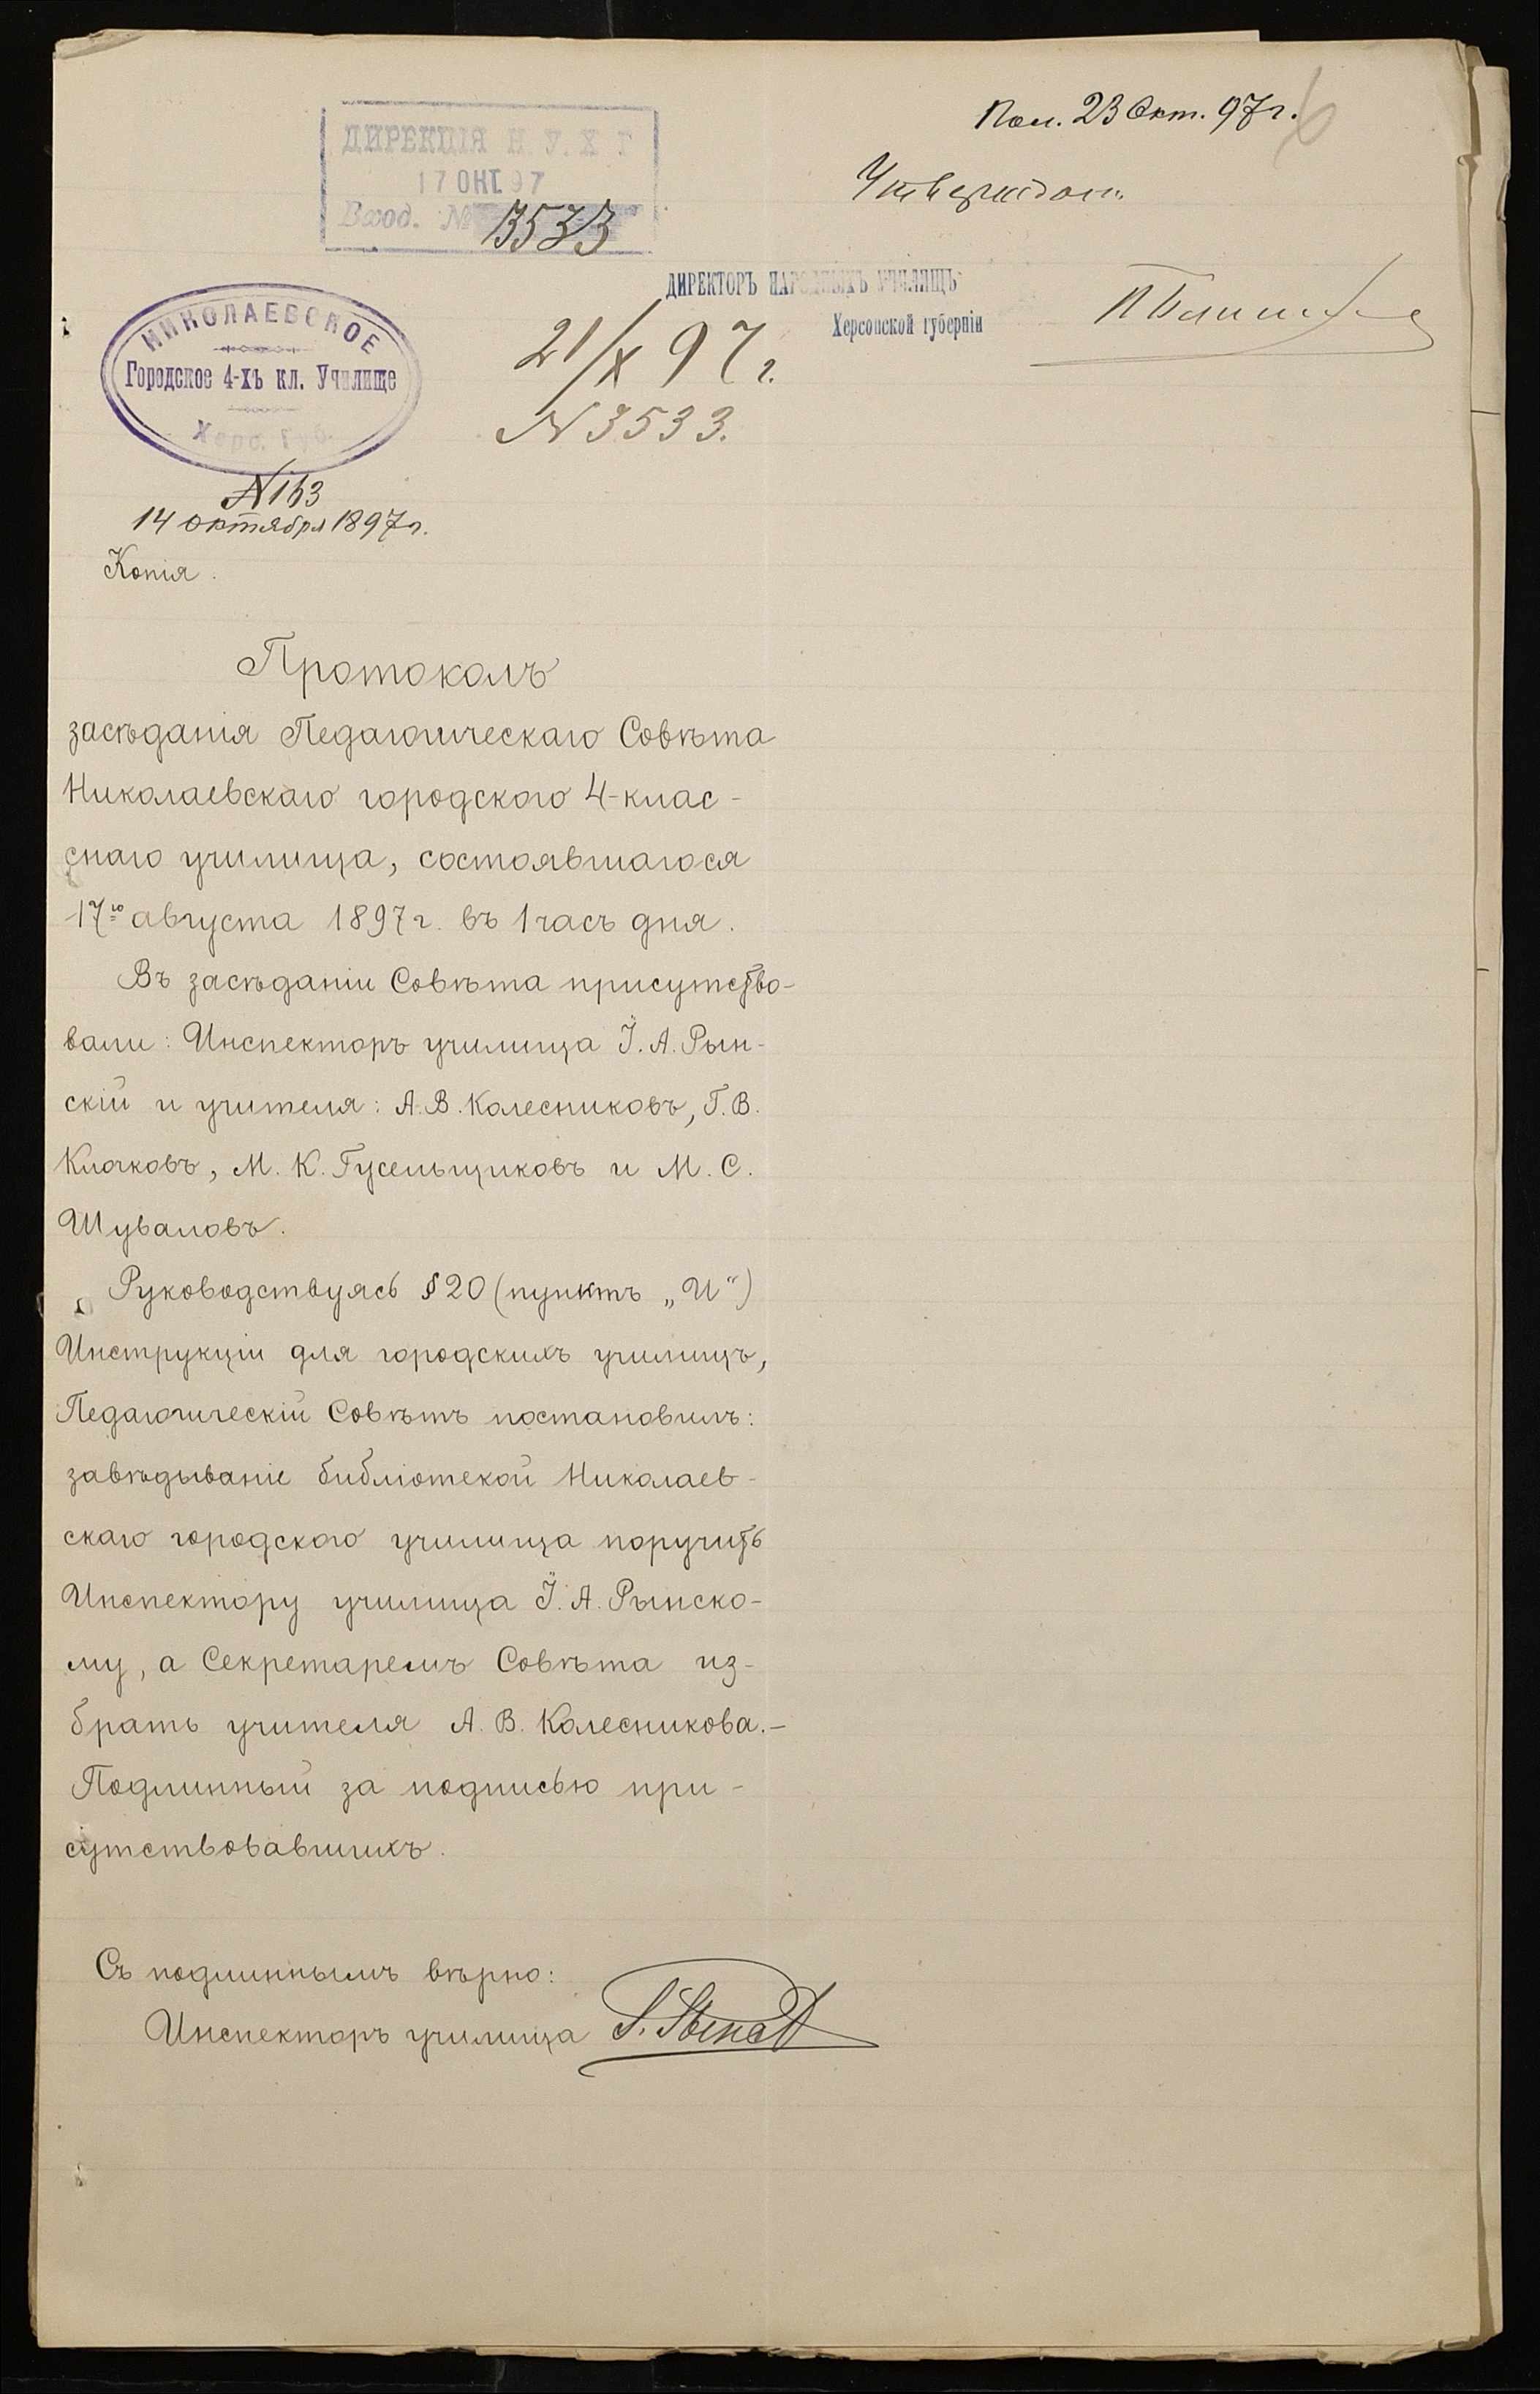 Пол. 23 Окт. 97 г.
ДИРЕКЦІЯ Н. У. Х. Г.
17 ОКТ. 97
Вход. № 3533
Утверждаю.
ДИРЕКТОРЪ НАРОДНЫХЪ УЧИЛИЩЪ
Херсонской губерніи
21/X 97 г.
N 3533.
НИКОЛАЕВСКОЕ
Городское 4-хъ кл. Училище
Херс. Губ.
N 163
14 октября 1897 г.
Копія.
Протоколъ
засѣданія Педагогическаго Совѣта
Николаевскаго городского 4-клас-
снаго училища, состоявшагося
17го августа 1897 г. въ 1 часъ дня.
Въ засѣданіи Совѣта присутство-
вали: Инспекторъ училища І. А. Рын-
скій и учителя: А. В. Колесниковъ, Г. В.
Клочковъ, М. К. Гусельщиковъ и М. С.
Шуваловъ.
Руководствуясь § 20 (пунктъ „И“)
Инструкціи для городскихъ училищъ,
Педагогическій Совѣтъ постановилъ:
завѣдываніе библіотекой Николаев-
скаго городского училища поручить
Инспектору училища І. А. Рынско-
му, а Секретаремъ Совѣта из-
брать учителя А. В. Колесникова.-
Подлинный за подписью при-
сутствовавшихъ.
Съ подлиннымъ вѣрно:
Инспекторъ училища